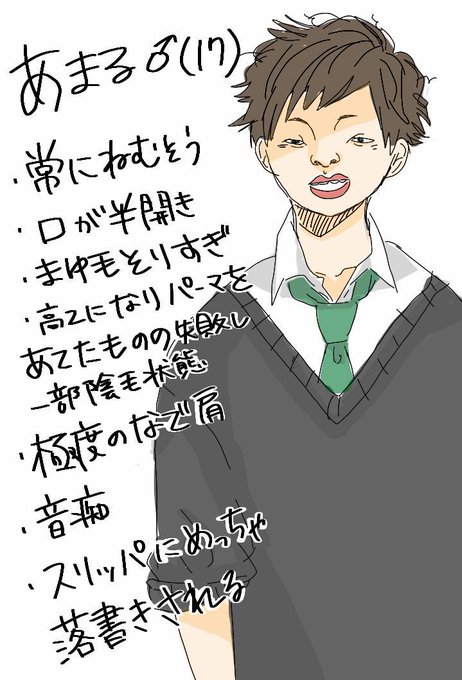 あまる♂(17)
・常にねむそう
・口が半開き
・まゆ毛とりすぎ
・高2になりパーマを
あてたものの失敗し
一部陰毛状態
・極度のなで肩
・音痴
・スリッパにめっちゃ
落書きされる